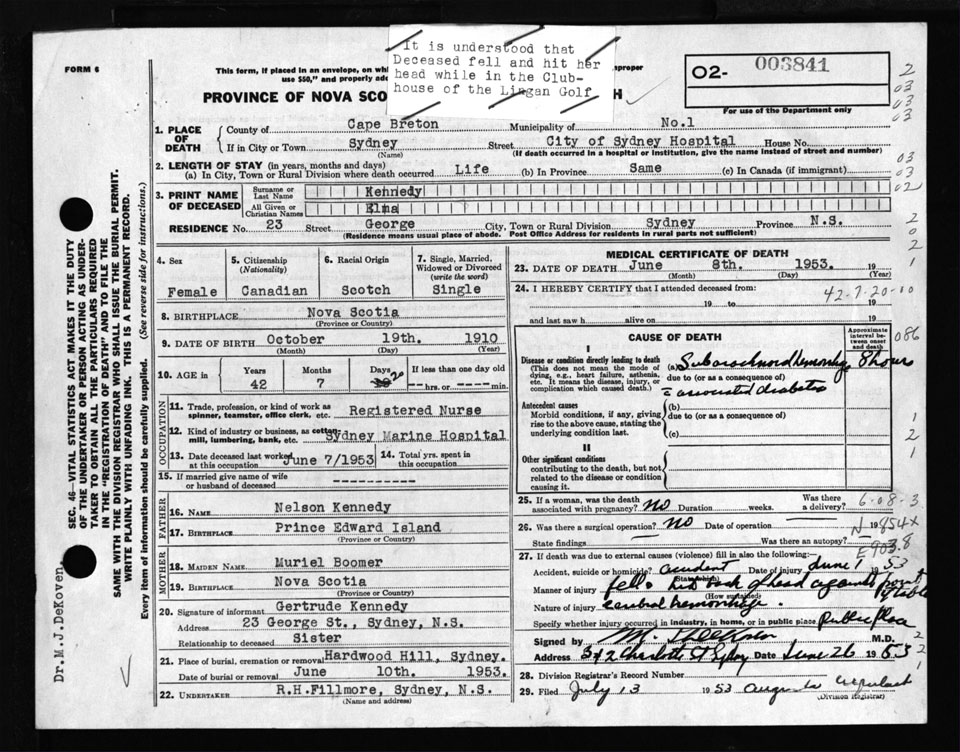 It is understood that
Deceased fell and hit her
head while in the Club-
house of the Lingan Golf
FORM 6
This form, if placed in an envelope, on wh
improper
use $50," and properly ad
PROVINCE OF NOVA SCO
H
O2- 003841
For use of the Department only
2
03
03
03
1. PLACE OF DEATH
County of Cape Breton Municipality of No.1
If in City or Town Sydney Street City of Sydney Hospital House No.
(Name) (If death occurred in a hospital or institution, give the name instead of street and number)
2. LENGTH OF STAY (in years, months and days)
(a) In City, Town or Rural Division where death occurred Life (b) In Province Same (c) In Canada (if immigrant)
03
03
02
3. PRINT NAME OF DECEASED
Surname or Last Name Kennedy
All Given or Christian Names Elma
RESIDENCE No. 23 Street George City, Town or Rural Division Sydney Province N.S.
(Residence means usual place of abode. Post Office Address for residents in rural parts not sufficient)
2
0
2
4. Sex Female
5. Citizenship (Nationality) Canadian
6. Racial Origin Scotch
7. Single, Married, Widowed or Divorced (write the word) Single
8. BIRTHPLACE Nova Scotia
(Province or Country)
9. DATE OF BIRTH October 19th. 1910
(Month) (Day) (Year)
10. AGE in Years Months Days If less than one day old
42 7 20 hrs. or min.
OCCUPATION
11. Trade, profession, or kind of work as
spinner, teamster, office clerk, etc. Registered Nurse
12. Kind of industry or business, as cotton
mill, lumbering, bank, etc. Sydney Marine Hospital
13. Date deceased last worked at this occupation June 7/1953
14. Total yrs. spent in this occupation
15. If married give name of wife
or husband of deceased
FATHER
16. Name Nelson Kennedy
17. Birthplace Prince Edward Island
(Province or Country)
MOTHER
18. Maiden Name Muriel Boomer
19. Birthplace Nova Scotia
(Province or Country)
20. Signature of informant Gertrude Kennedy
Address 23 George St., Sydney, N.S.
Relationship to deceased Sister
21. Place of burial, cremation or removal Hardwood Hill, Sydney.
Date of burial or removal June 10th. 1953.
22. Undertaker R.H.Fillmore, Sydney, N.S.
(Name and address)
MEDICAL CERTIFICATE OF DEATH
23. DATE OF DEATH June 8th. 1953. 19
(Month) (Day) (Year)
24. I HEREBY CERTIFY that I attended deceased from:
19 to 19
42-7-20-10
and last saw h alive on 19
CAUSE OF DEATH
Approximate interval between onset and death
086
I
Disease or condition directly leading to death
(This does not mean the mode of
dying, e.g., heart failure, asthenia,
etc. It means the disease, injury, or
complication which caused death.)
(a) Subarachnoid Hemorrhage 8 hours
due to (or as a consequence of)
associated diabetes
Antecedent causes
Morbid conditions, if any, giving
rise to the above cause, stating the
underlying condition last.
(b)
due to (or as a consequence of)
(c)
1
2
1
II
Other significant conditions
contributing to the death, but not
related to the disease or condition
causing it.
25. If a woman, was the death
associated with pregnancy? No Duration weeks. Was there a delivery?
6-08-3
26. Was there a surgical operation? No Date of operation 19
N 854x
State findings Was there an autopsy?
E903.8
27. If death was due to external causes (violence) fill in also the following:
Accident, suicide or homicide? accident Date of injury June 1953
(State which)
Manner of injury fell & hit back of head against front of table
(How sustained)
Nature of injury cerebral hemorrhage.
Specify whether injury occurred in industry, in home, or in public place Public Place
Signed by M. M.D.
Address Charlotte St Sydney Date June 26 1953
28. Division Registrar's Record Number
29. Filed July 13 1953
(Division Registrar)
SEC. 46—VITAL STATISTICS ACT MAKES IT THE DUTY
OF THE UNDERTAKER OR PERSON ACTING AS UNDER-
TAKER TO OBTAIN ALL THE PARTICULARS REQUIRED
IN THE "REGISTRATION OF DEATH" AND TO FILE THE
SAME WITH THE DIVISION REGISTRAR WHO SHALL ISSUE THE BURIAL PERMIT.
WRITE PLAINLY WITH UNFADING INK. THIS IS A PERMANENT RECORD.
Every item of information should be carefully supplied. (See reverse side for instructions.)
Dr.M.J.DeKoven.